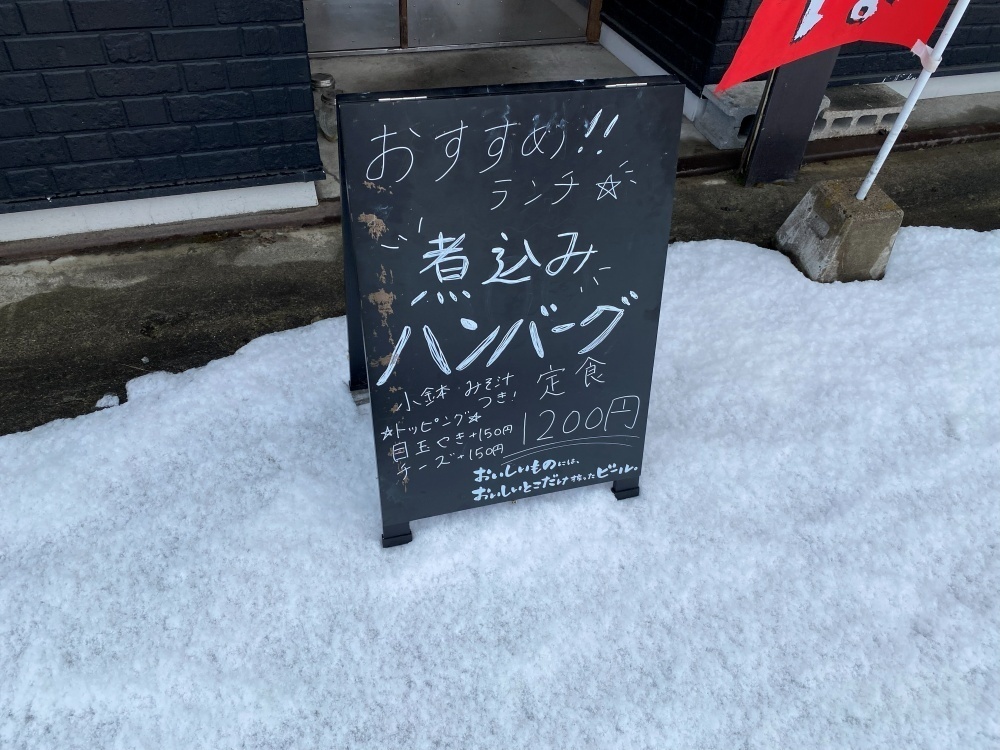 おすすめ!!
ランチ☆
煮込み
ハンバーグ
定食
小鉢・みそ汁
つき!
☆トッピング☆
目玉やき+150円
チーズ+150円
1200円
おいしいものには、
おいしいとこだけ搾ったビール。